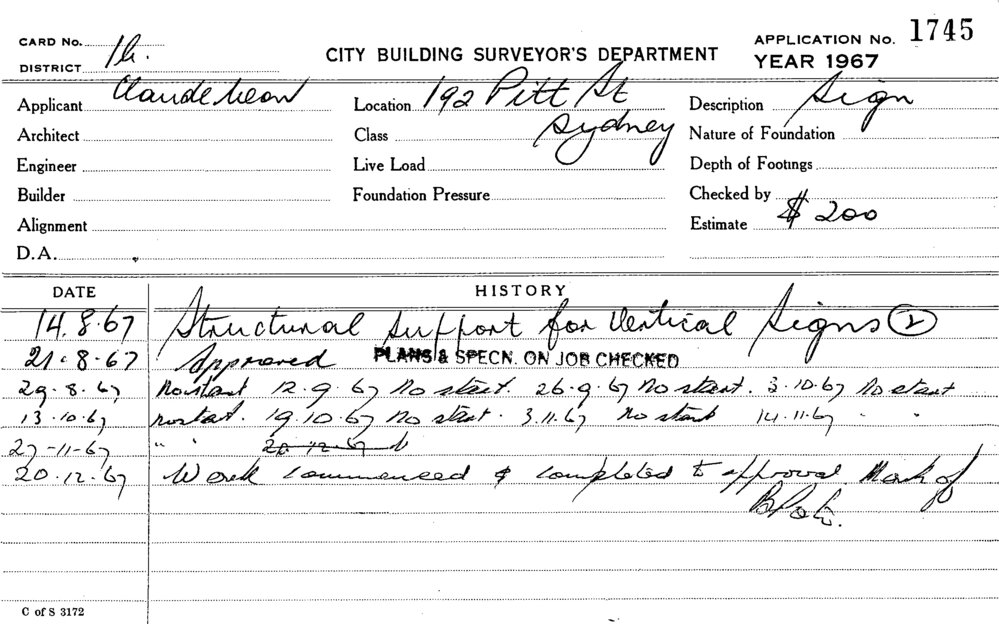 CARD No. 1h. CITY BUILDING SURVEYOR'S DEPARTMENT APPLICATION No. 1745
DISTRICT YEAR 1967
Applicant Claude Neon Location 192 Pitt St Description Sign
Architect Class Sydney Nature of Foundation
Engineer Live Load Depth of Footings
Builder Foundation Pressure Checked by
Alignment Estimate $ 200
D.A.
DATE HISTORY
14.8.67 Structural support for Vertical Signs (2)
21.8.67 Approved PLANS & SPECN. ON JOB CHECKED
29.8.67 No start 12.9.67 No start. 26.9.67 No start. 3.10.67 No start
13.10.67 no start. 19.10.67 No start. 3.11.67 no start 14.11.67 " "
27-11-67 " " 20.12.67
20.12.67 Work commenced & completed to approval Mark of
C of S 3172